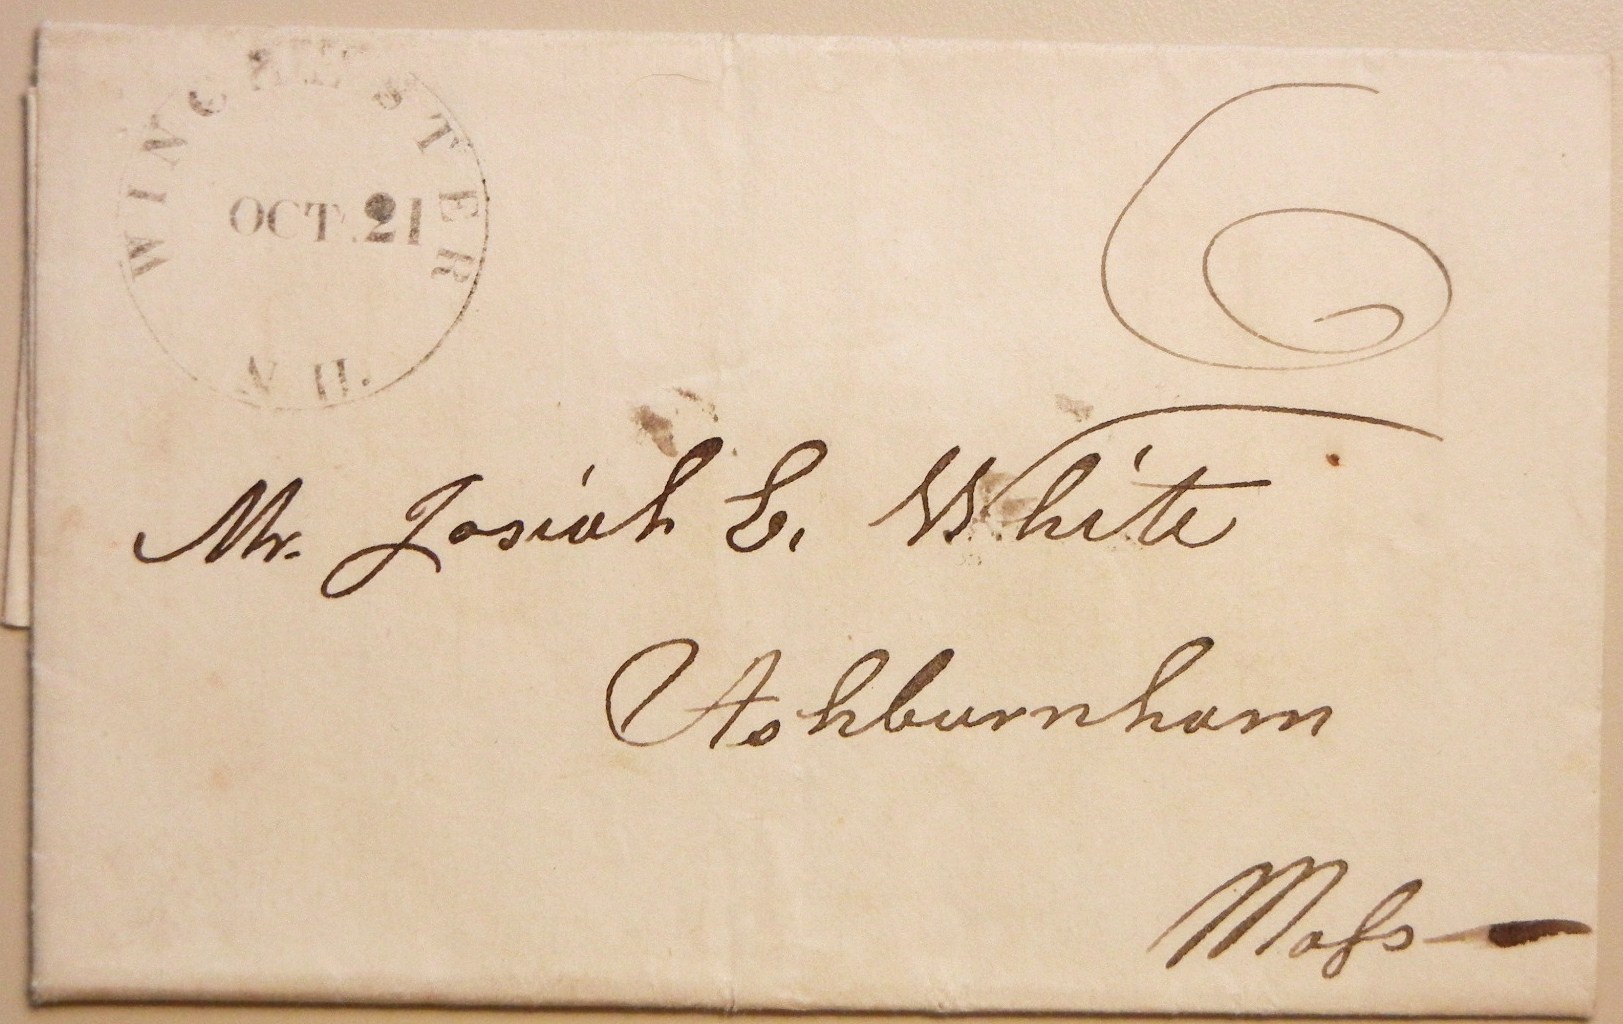 WINCHESTER
OCT. 21
N. H.
6
Mr. Josiah E. White
Ashburnham
Maſs